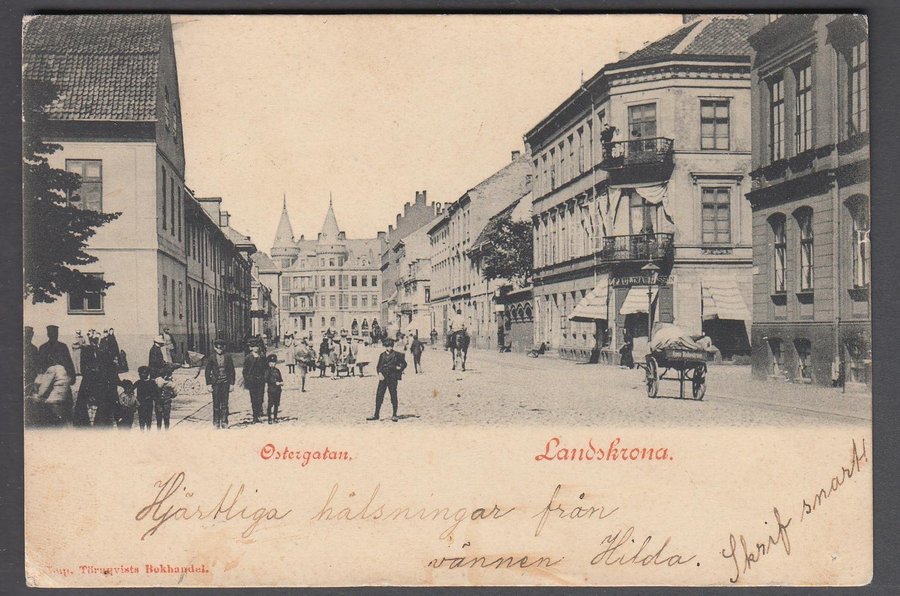 Ostergatan.
Landskrona.
Hjärtliga hälsningar från
vännen Hilda.
Skrif snart!
Törnqvists Bokhandel.